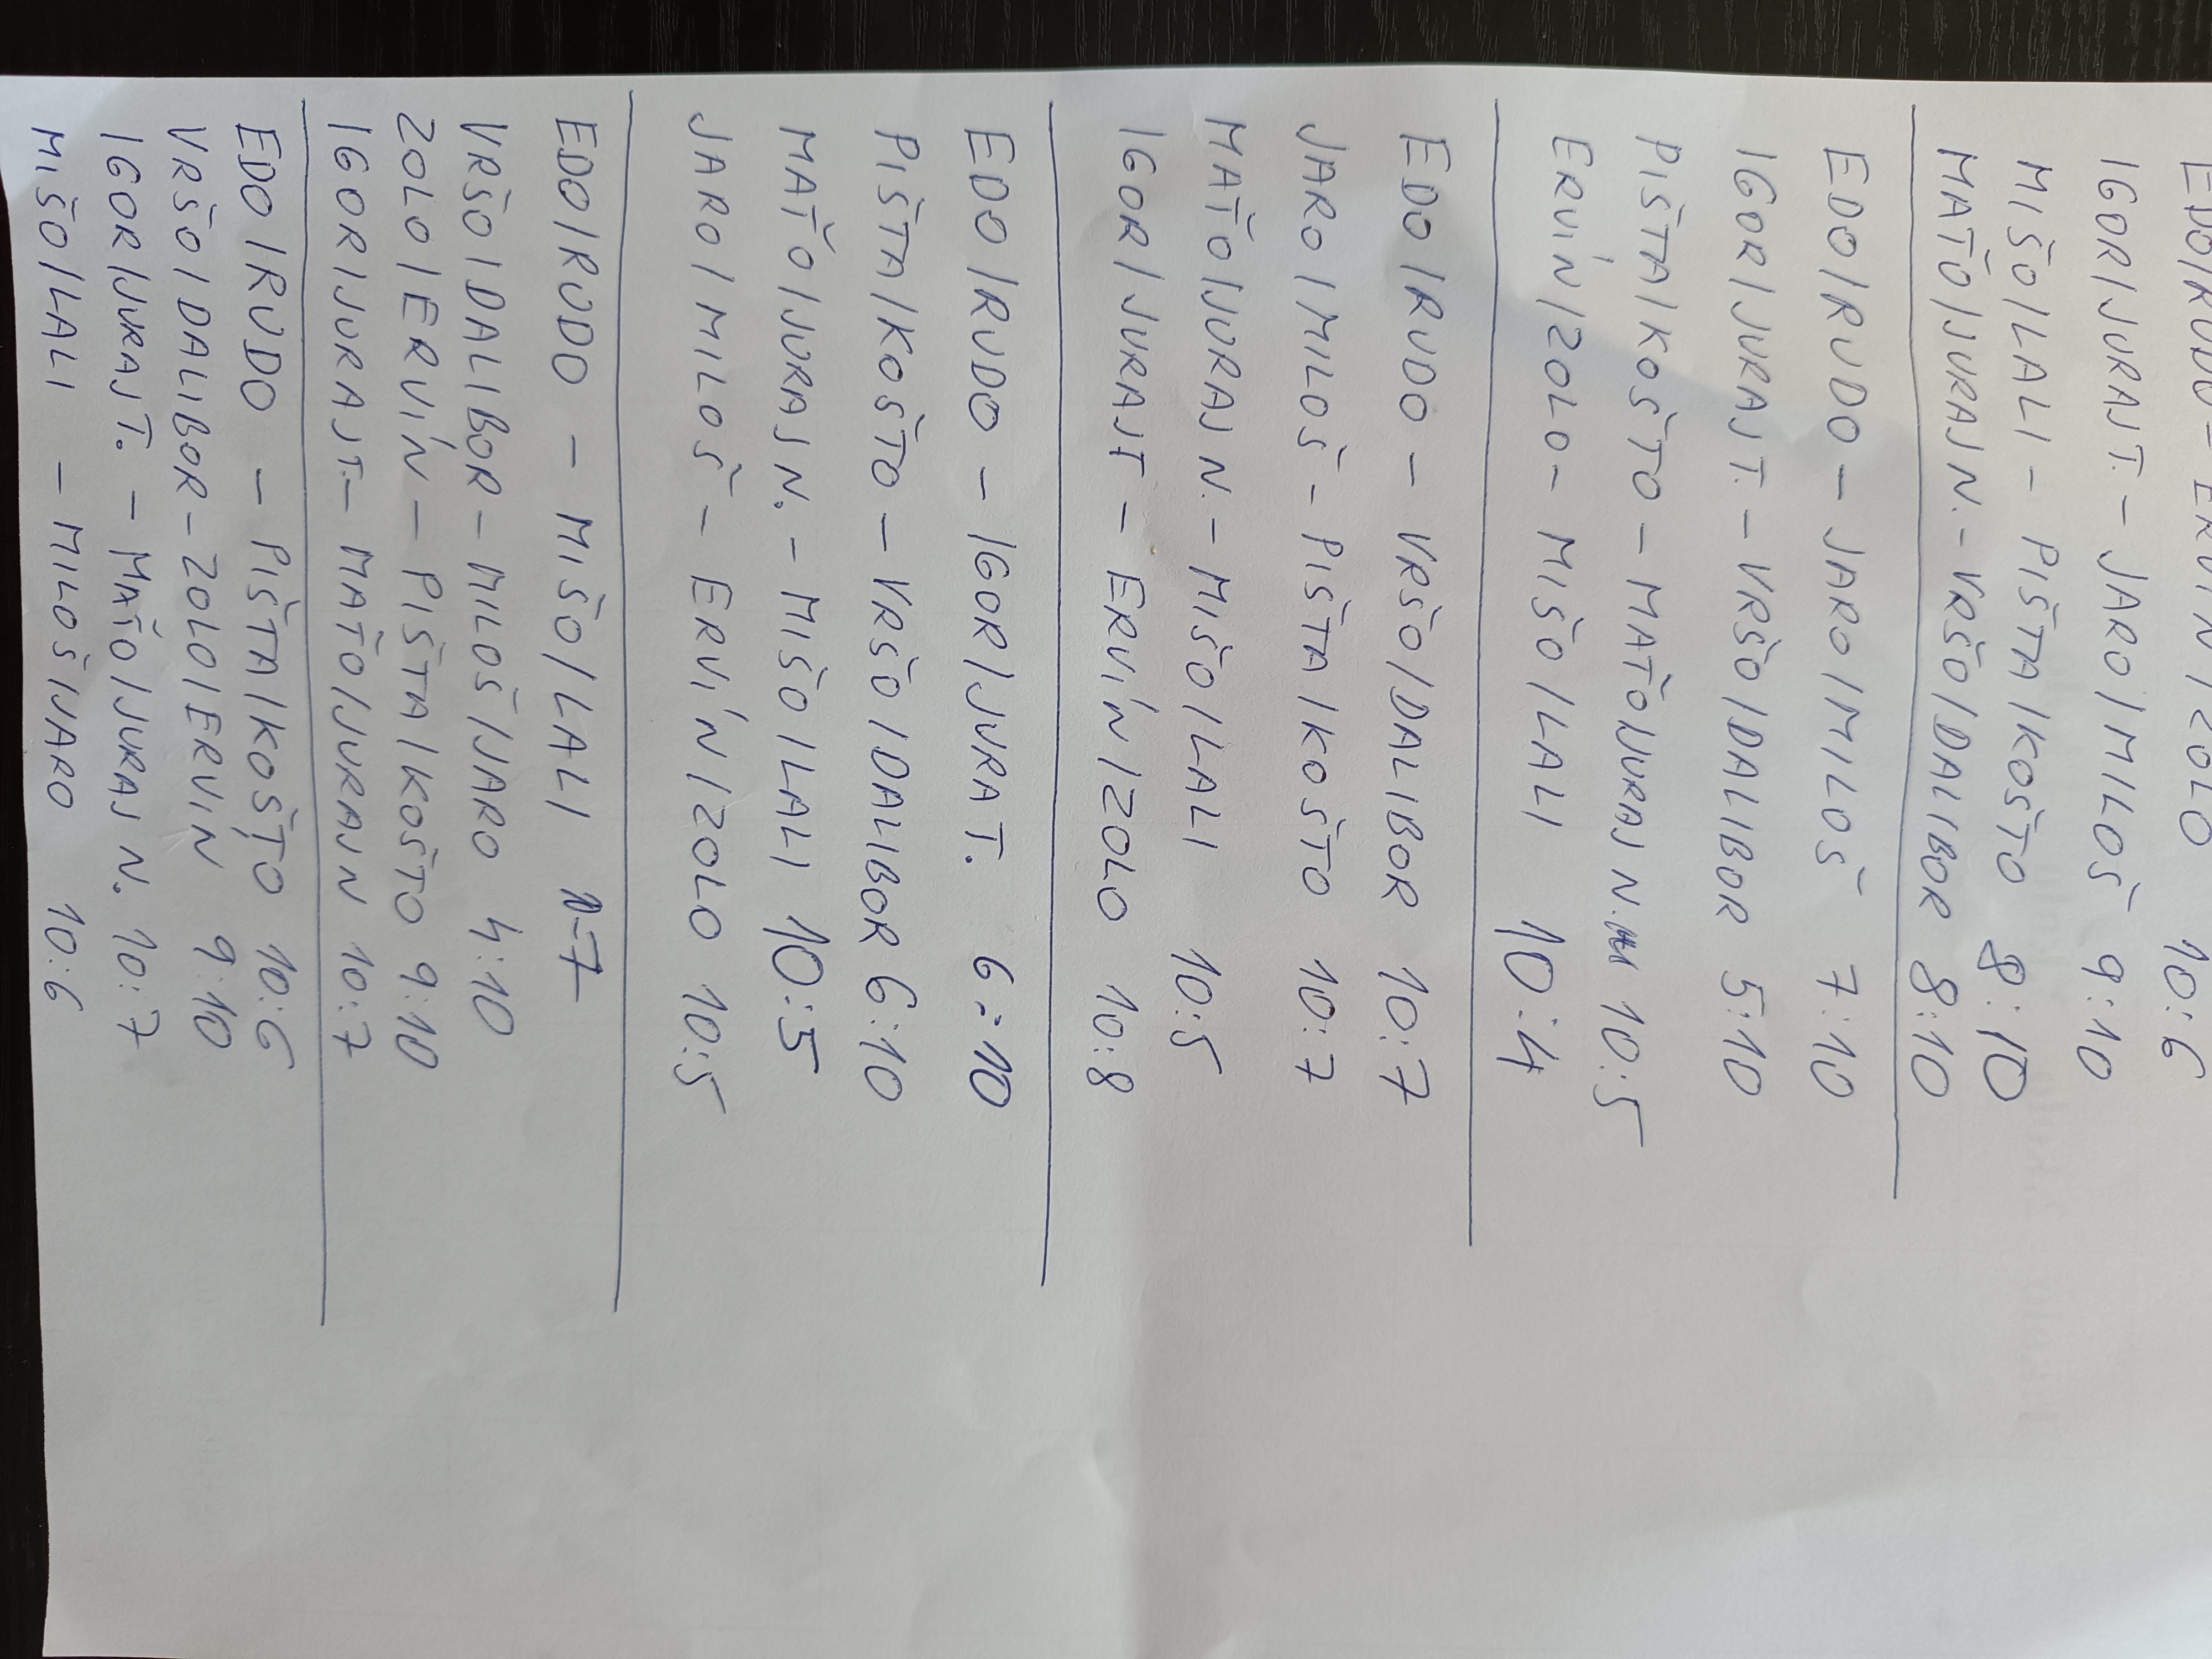 EDO/RUDO - ERVÍN/ZOLO 10:6
IGOR/JURAJ T. - JARO/MILOŠ 9:10
MIŠO/LALI - PIŠTA/KOŠTO 8:10
MAŤO/JURAJ N. - VRŠO/DALIBOR 8:10
EDO/RUDO - JARO/MILOŠ 7:10
IGOR/JURAJ T. - VRŠO/DALIBOR 5:10
PIŠTA/KOŠTO - MAŤO/JURAJ N. 10:5
ERVÍN/ZOLO - MIŠO/LALI 10:4
EDO/RUDO - VRŠO/DALIBOR 10:7
JARO/MILOŠ - PIŠTA/KOŠTO 10:7
MAŤO/JURAJ N. - MIŠO/LALI 10:5
IGOR/JURAJ T - ERVÍN/ZOLO 10:8
EDO/RUDO - IGOR/JURA T. 6:10
PIŠTA/KOŠTO - VRŠO/DALIBOR 6:10
MAŤO/JURAJ N. - MIŠO/LALI 10:5
JARO/MILOŠ - ERVÍN/ZOLO 10:5
EDO/RUDO - MIŠO/LALI
VRŠO/DALIBOR - MILOŠ/JARO 4:10
ZOLO/ERVÍN - PIŠTA/KOŠTO 9:10
IGOR/JURAJ T. - MAŤO/JURAJ N 10:7
EDO/RUDO - PIŠTA/KOŠTO 10:6
VRŠO/DALIBOR - ZOLO/ERVIN 9:10
IGOR/JURAJ T. - MAŤO/JURAJ N. 10:7
MIŠO/LALI - MILOŠ/JARO 10:6